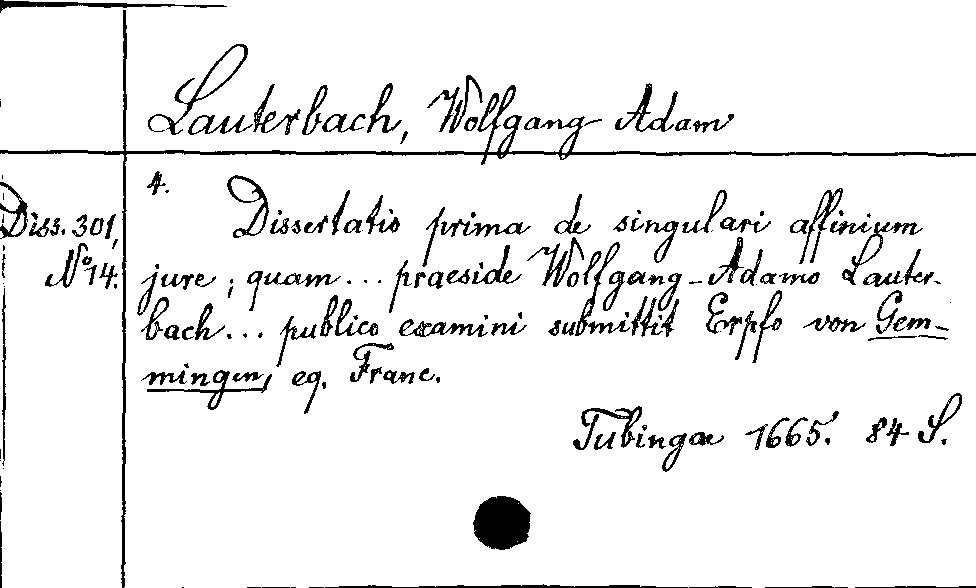 Lauterbach, Wolfgang Adam
4.
Diss. 301,
Nº 14.
Dissertatio prima de singulari affinium
jure, quam... praeside Wolfgang-Adamo Lauter-
bach... publico examini submittit Erpfo von Gem-
mingen, eq. Franc.
Tubingae 1665. 84 S.